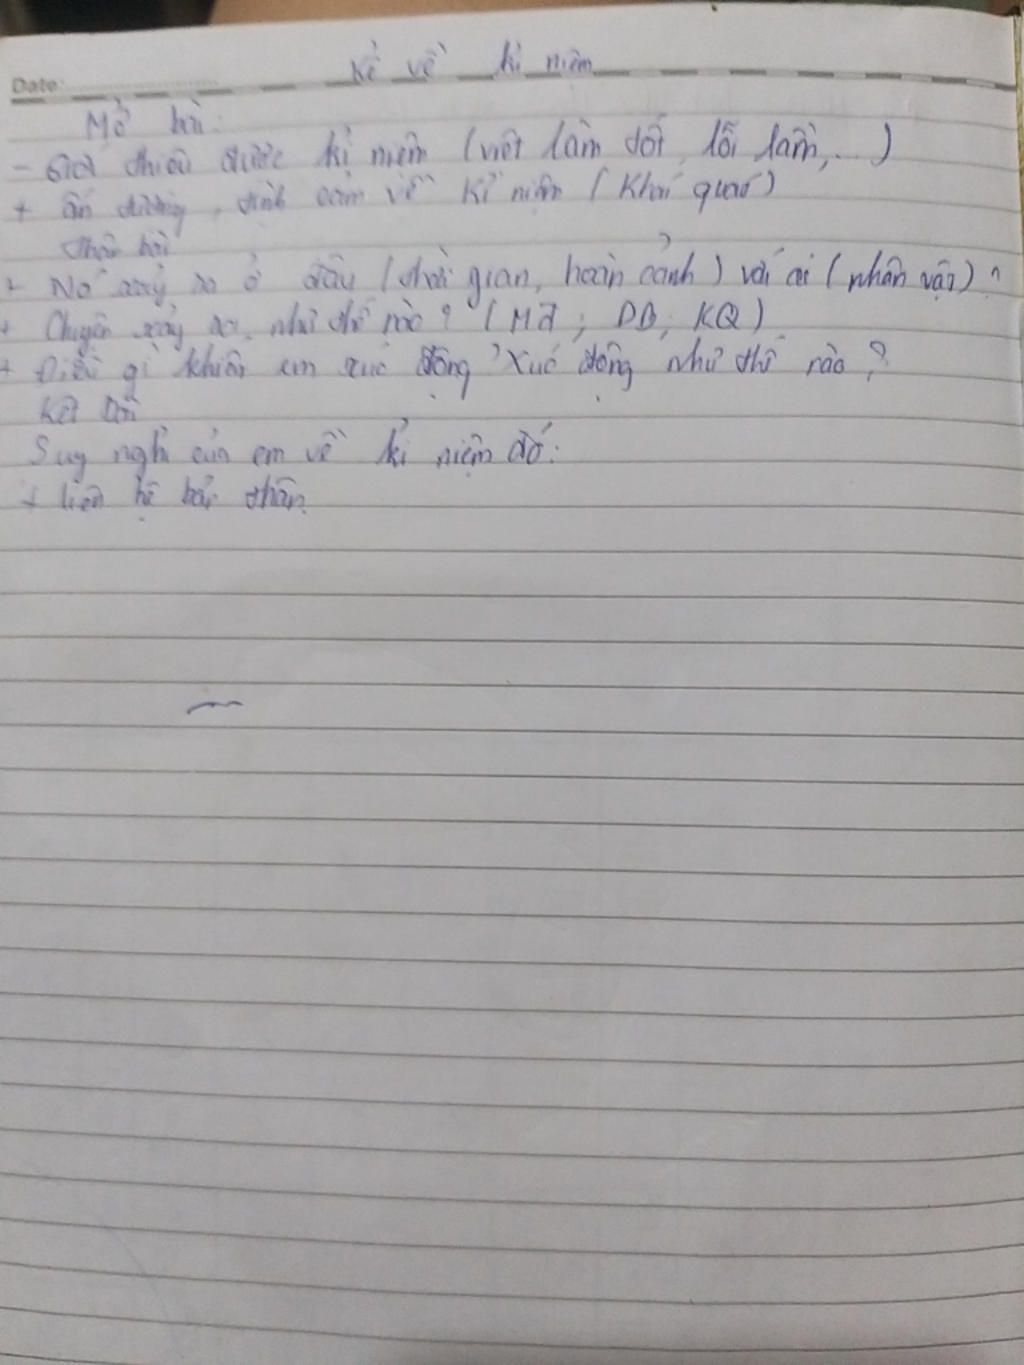 Date:
Kể về kỉ niệm
Mở bài:
- Giới thiệu được kỉ niệm (việt làm tốt, lỗi lầm,...)
+ ấn tượng, tình cảm về kỉ niệm (Khái quát)
Thân bài
+ Nó xảy ra ở đâu (thời gian, hoàn cảnh) với ai (nhân vật)?
+ Chuyện xảy ra như thế nào? (MĐ; DB; KQ)
+ Điều gì khiến em xúc động? Xúc động như thế nào?
Kết bài
Suy nghĩ của em về kỉ niệm đó.
+ liên hệ bản thân.